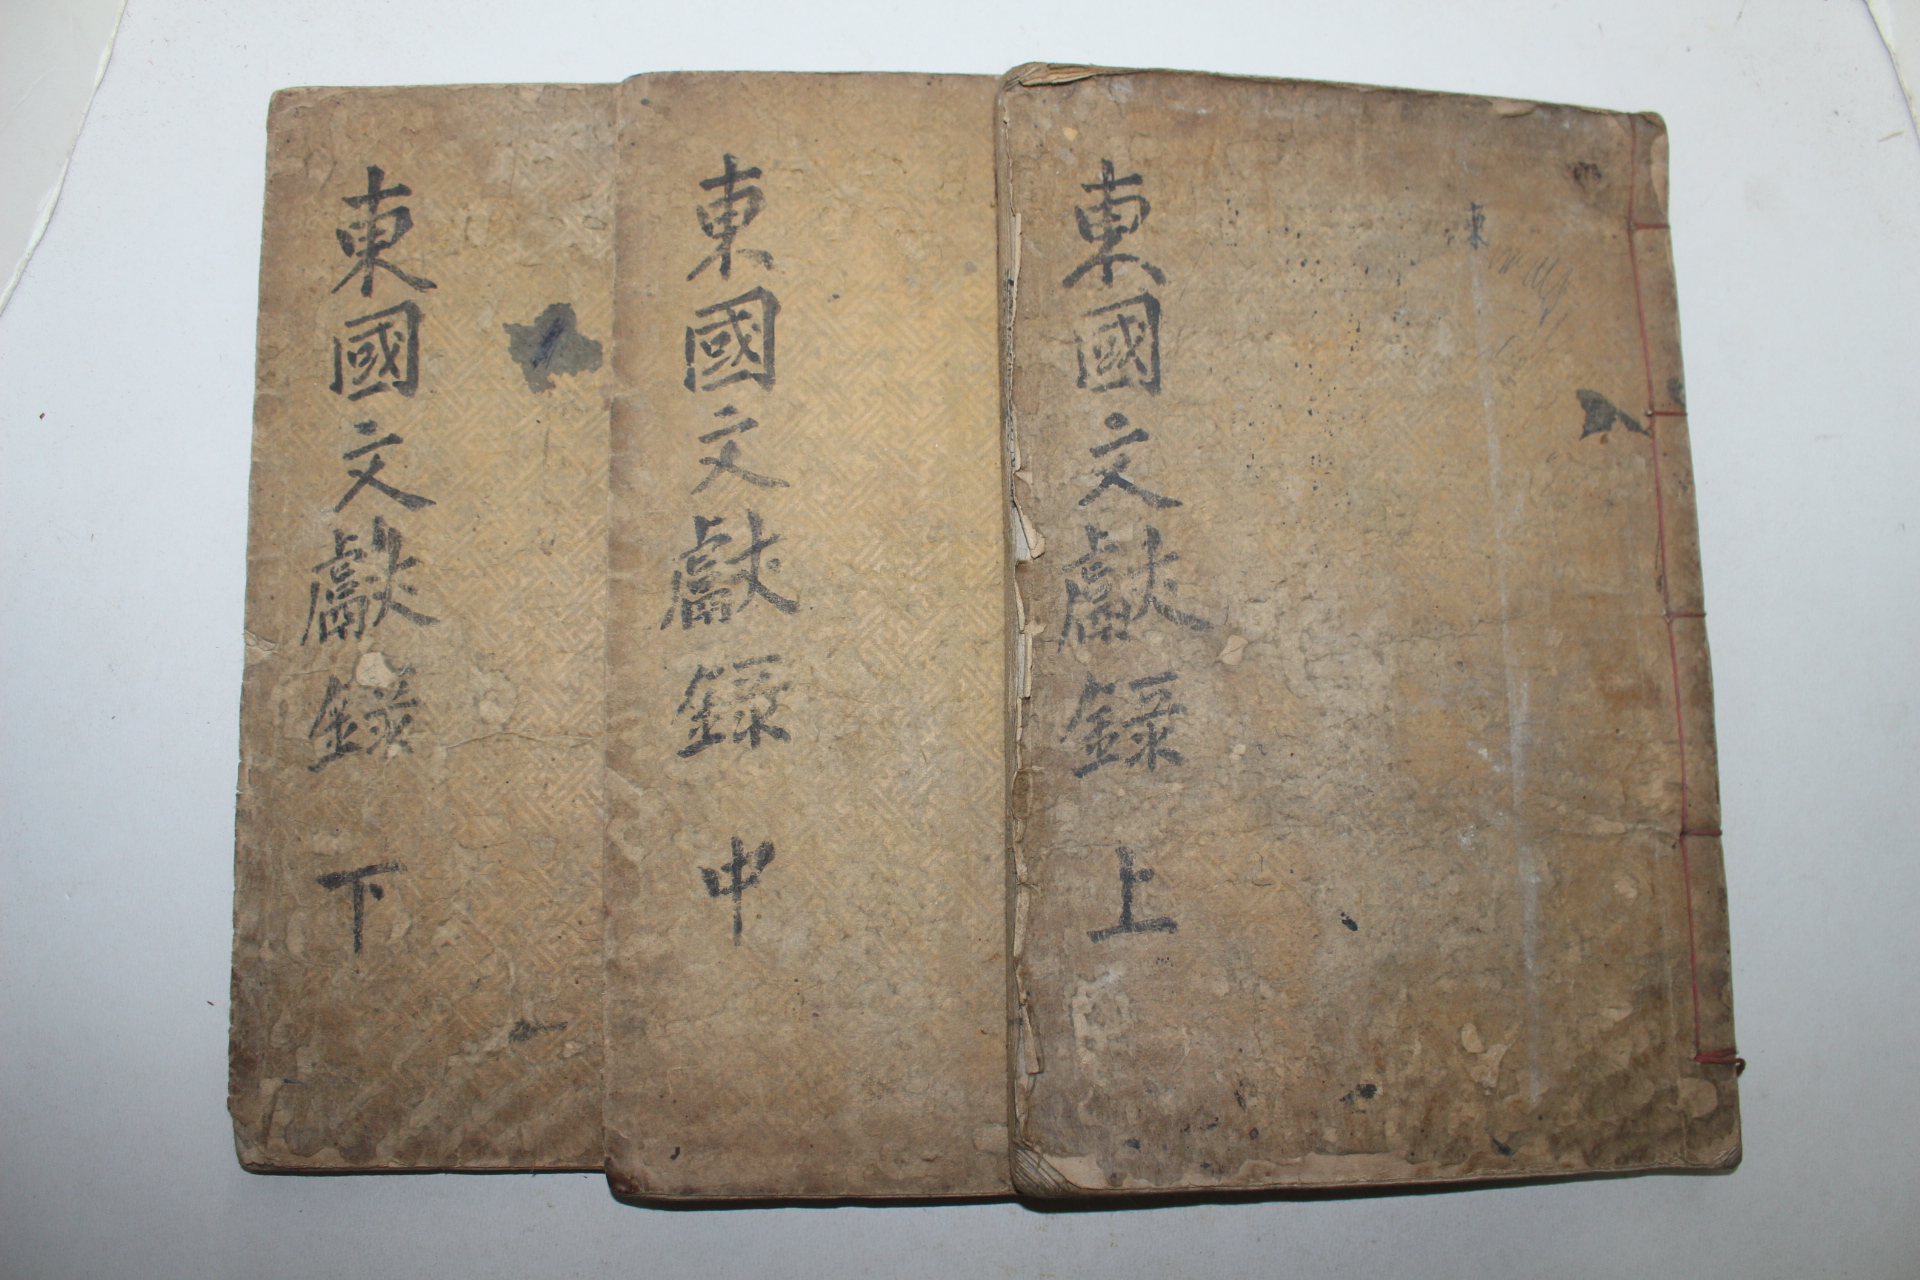 東國文獻錄 上
東國文獻錄 中
東國文獻錄 下
東